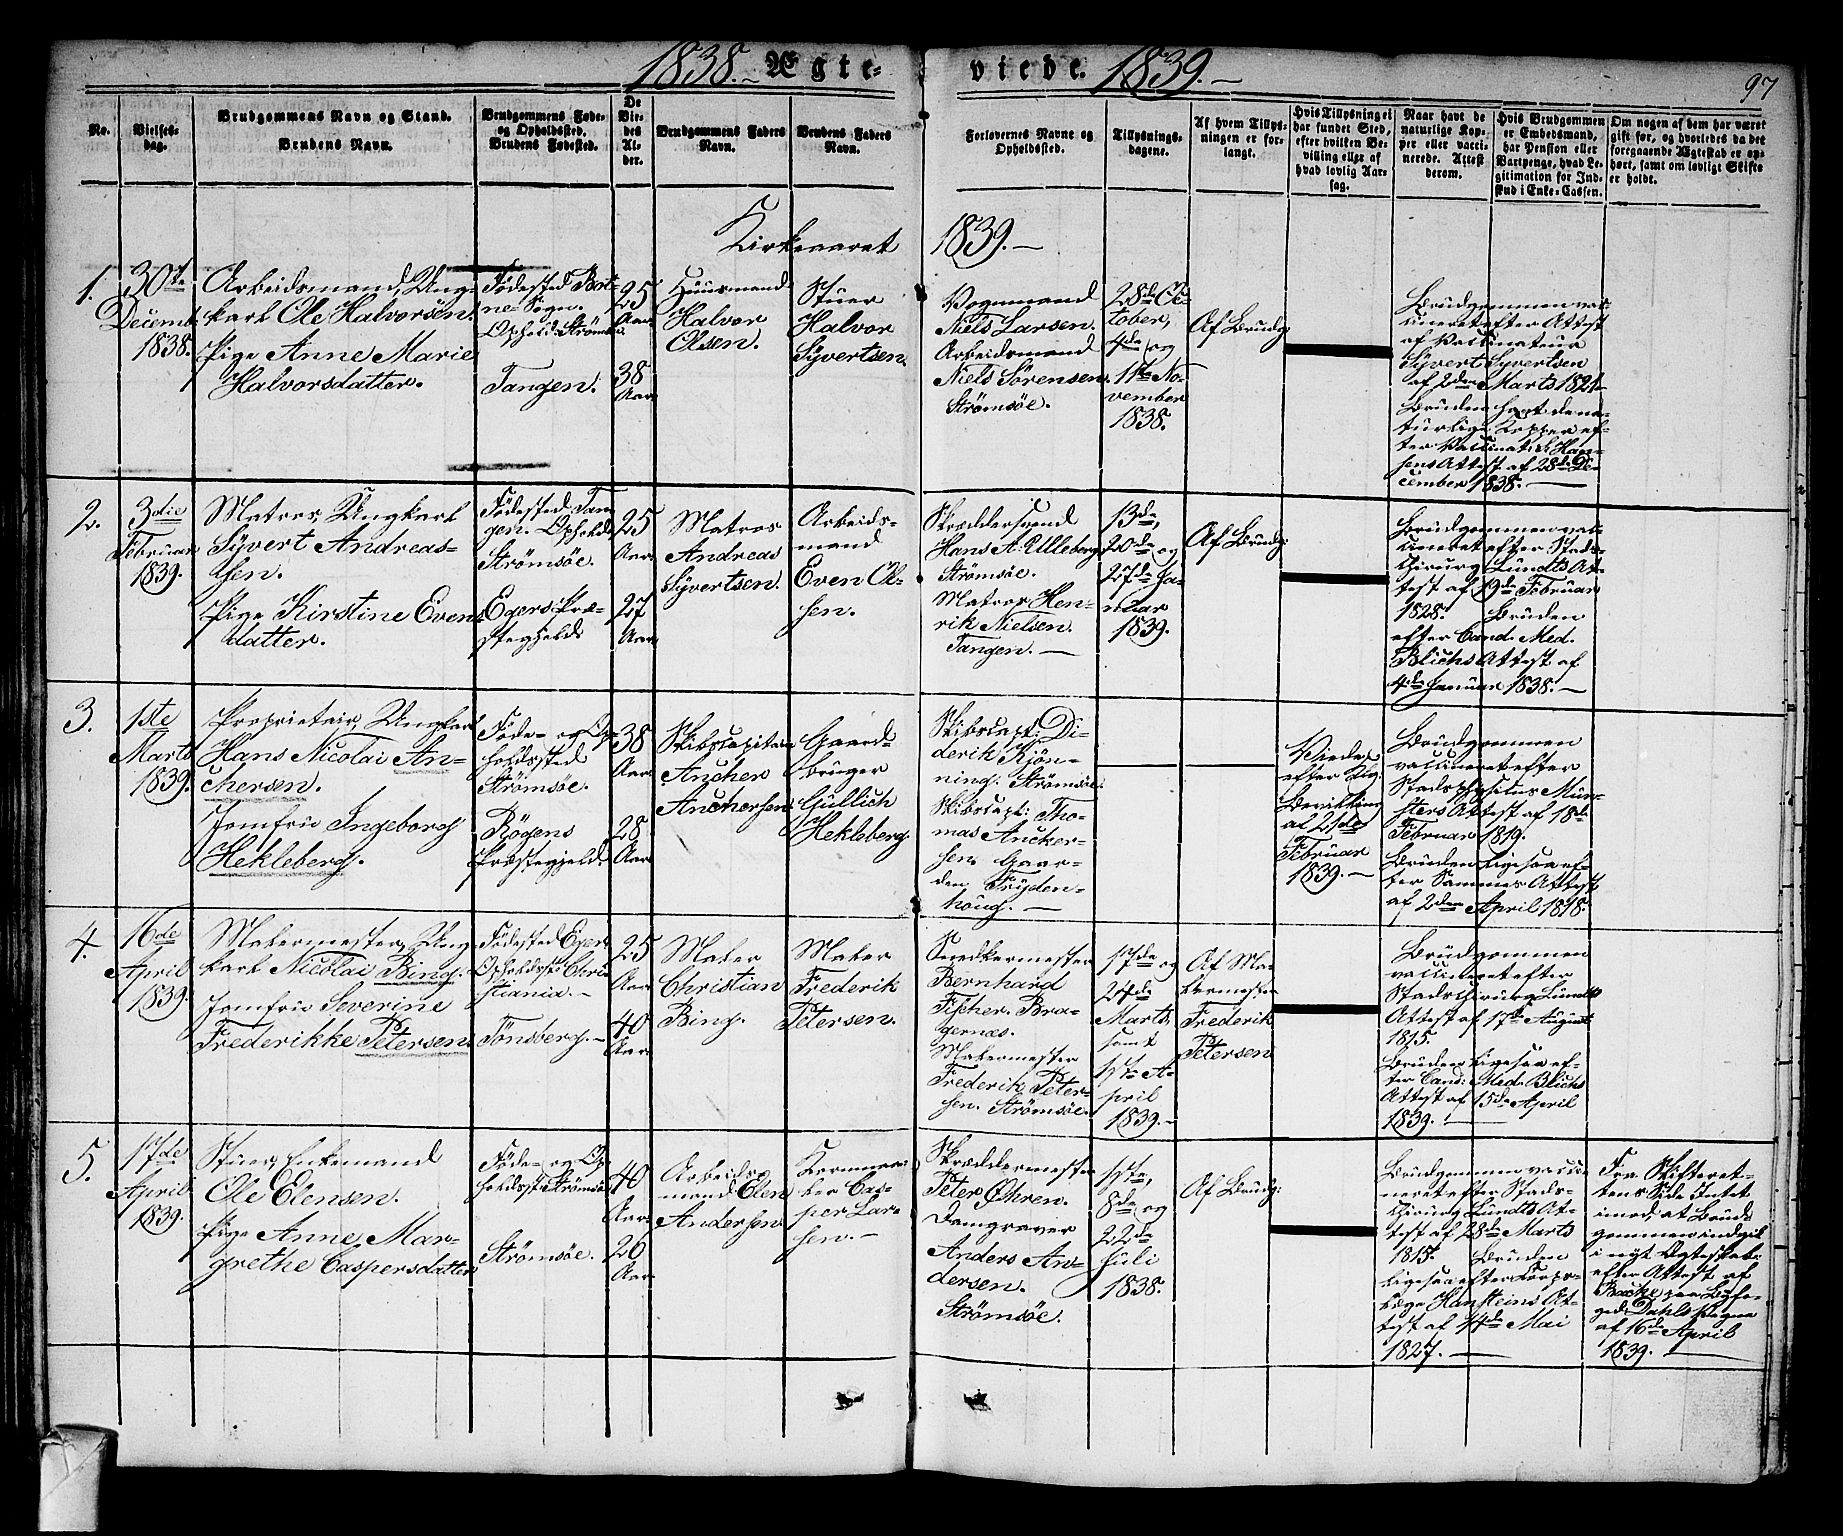 1838. Ægte-
viede. 1839.
97
No.
Vielses-
dag.
Brudgommens Navn og Stand.
Brudens Navn.
Brudgommens Føde-
og Opholdssted.
Brudens Fødested.
De
Vie-
des
Al-
der.
Brudgommens Faders
Navn.
Brudens Faders
Navn.
Forlovernes Navne og
Opholdssted.
Tillysnings-
dagene.
Af hvem Tillys-
ningen er for-
langt.
Hvis Tillysning ei
har fundet Sted,
efter hvilken Be-
villing eller af
hvad lovlig Aar-
sag.
Naar have de
naturlige Kop-
per eller vacci-
nerede. Attest
derom.
Hvis Brudgommen
er Embedsmand,
har Pension eller
Vartpenge, hvad Le-
gitimation for Ind-
skud i Enke-Cassen.
Om nogen af dem har været
gift før, og hvorledes da det
foregaaende Ægteskab er op-
hørt, samt om lovligt Skifte
er holdt.
Kirkeaaret 1839.
1.
30te
Decemb.
1838.
Arbeidsmand, Ung-
karl Ole Halvorsen.
Pige Anne Marie
Halvorsdatter.
Fødested Bot-
ne Sogn.
Opholds: Strömsöe.
Tangen.
25
Aar.
38
Aar
Huusmand
Halvor
Olsen.
Stuer
Halvor
Syvertsen.
Vognmand
Niels Larsen.
Arbeidsmand
Niels Sörensen.
Strömsöe.
28de Oc-
tober,
4de og
11te No-
vember
1838.
Af Brudg:
Brudgommen vac-
cineret efter Attest
af Vaccinateur
Syvert Syvertsen
af 2den Marts 1821.
Bruden havt de na-
turlige Kopper ef-
ter Vaccinat: L: Han-
sens Attest af 28de De-
cember 1838.
2.
3die
Februar
1839.
Matros, Ungkarl
Syvert Andreas-
sen.
Pige Kirstine Evens-
datter.
Födested Tan-
gen. Opholds:
Strömsöe.
Egers Præ-
stegjeld.
25
Aar.
27
Aar.
Matros
Andreas
Syvertsen.
Arbeids-
mand
Even Ol-
sen.
Skræddersvend
Hans A. Ulleberg
Strömsöe.
Matros Hen-
rik Nielsen.
Tangen.
13de,
20de og
27de Ja-
nuar
1839.
Af Brudg:
Brudgommen vac-
cineret efter Stads-
chirurg Lundts At-
test af 19de Februar
1828. Bruden
efter Cand. Med.
Blichs Attest af
4de Januar 1838.
3.
1ste
Marts
1839.
Proprietair, Ungkarl
Hans Nicolai An-
chersen.
Jomfru Ingeborg
Hekleberg.
Föde- og Op-
holdssted
Strömsöe.
Rögens
Præstegjeld.
38
Aar.
28
Aar.
Skibscapitain
Ancher
Anchersen.
Gaard-
bruger
Gullich
Hekleberg.
Skibscapt: Di-
derik Kjön-
ning. Strömsöe.
Skibscapt: Tho-
mas Ancher-
sen. Gaar-
den Fryden-
houg.
Viede
efter Kgl.
Bevilling
af 21de
Februar
1839.
Brudgommen
vaccineret efter
Stadsphysicus Mün-
sters Attest af 18de
Februar 1819.
Bruden ligesaa ef-
ter Sammes Attest
af 2den April 1818.
4.
16de
April
1839.
Malermester, Ung-
karl Nicolai Bing.
Jomfru Severine
Frederikke Petersen.
Födested Eger.
Opholdsst: Chri-
stiania.
Tönsberg.
25
Aar.
40
Aar.
Maler
Christian
Bing.
Maler
Frederik
Petersen.
Snedkermester
Bernhard
Fischer. Bra-
gernæs.
Malermester
Frederik Peter-
sen. Strömsöe.
17de og
24de
Marts
samt
1ste A-
pril
1839.
Af Ma-
lermester
Frederik
Petersen
Brudgommen
vaccineret efter
Stadschirurg Lundts
Attest af 17de August
1815.
Bruden ligesaa ef-
ter Cand: Med. Blichs
Attest af 15de April
1839.
5.
17de
April
1839.
Stuer, Enkemand
Ole Elensen.
Pige Anne Mar-
grethe Caspersdatter
Föde- og Op-
holdsst: Strömsöe
Strömsöe.
40
Aar.
26
Aar.
Arbeids-
mand Elen
Andersen.
Casper Lar-
sen.
Skræddermester
Peter Öhren.
Damgraver
Anders An-
dersen.
Strömsöe.
1ste,
8de og
22de
Juli
1838.
Af Brudg:
Brudgommen vacci-
neret efter Stads-
chirurg Lundts At-
test af 28de Marts
1815. Bruden
ligesaa efter Corps-
læge Hansteins At-
test af 14de Mai
1827.
Fra Skifteret-
tens Side Intet
imod, at Brud-
gommen indgik
i nyt Ægteskab
efter Attest af
Backe paa Byfo-
ged Dahls Vegne
af 16de April
1839.